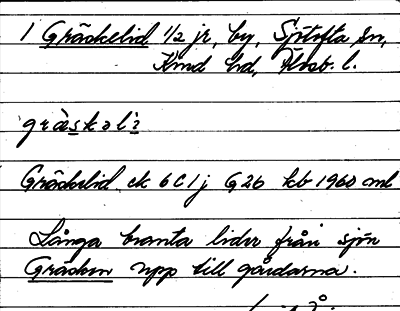 1 Gräskelid 1/2 jr, by, Sjötofta sn,
Kind hd, Älvsb. l.
græ̀skəlì
Gräskelid ek 6C1j G26 kb 1960 ml
Långa branta lider från sjön
Gräsken upp till gårdarna.